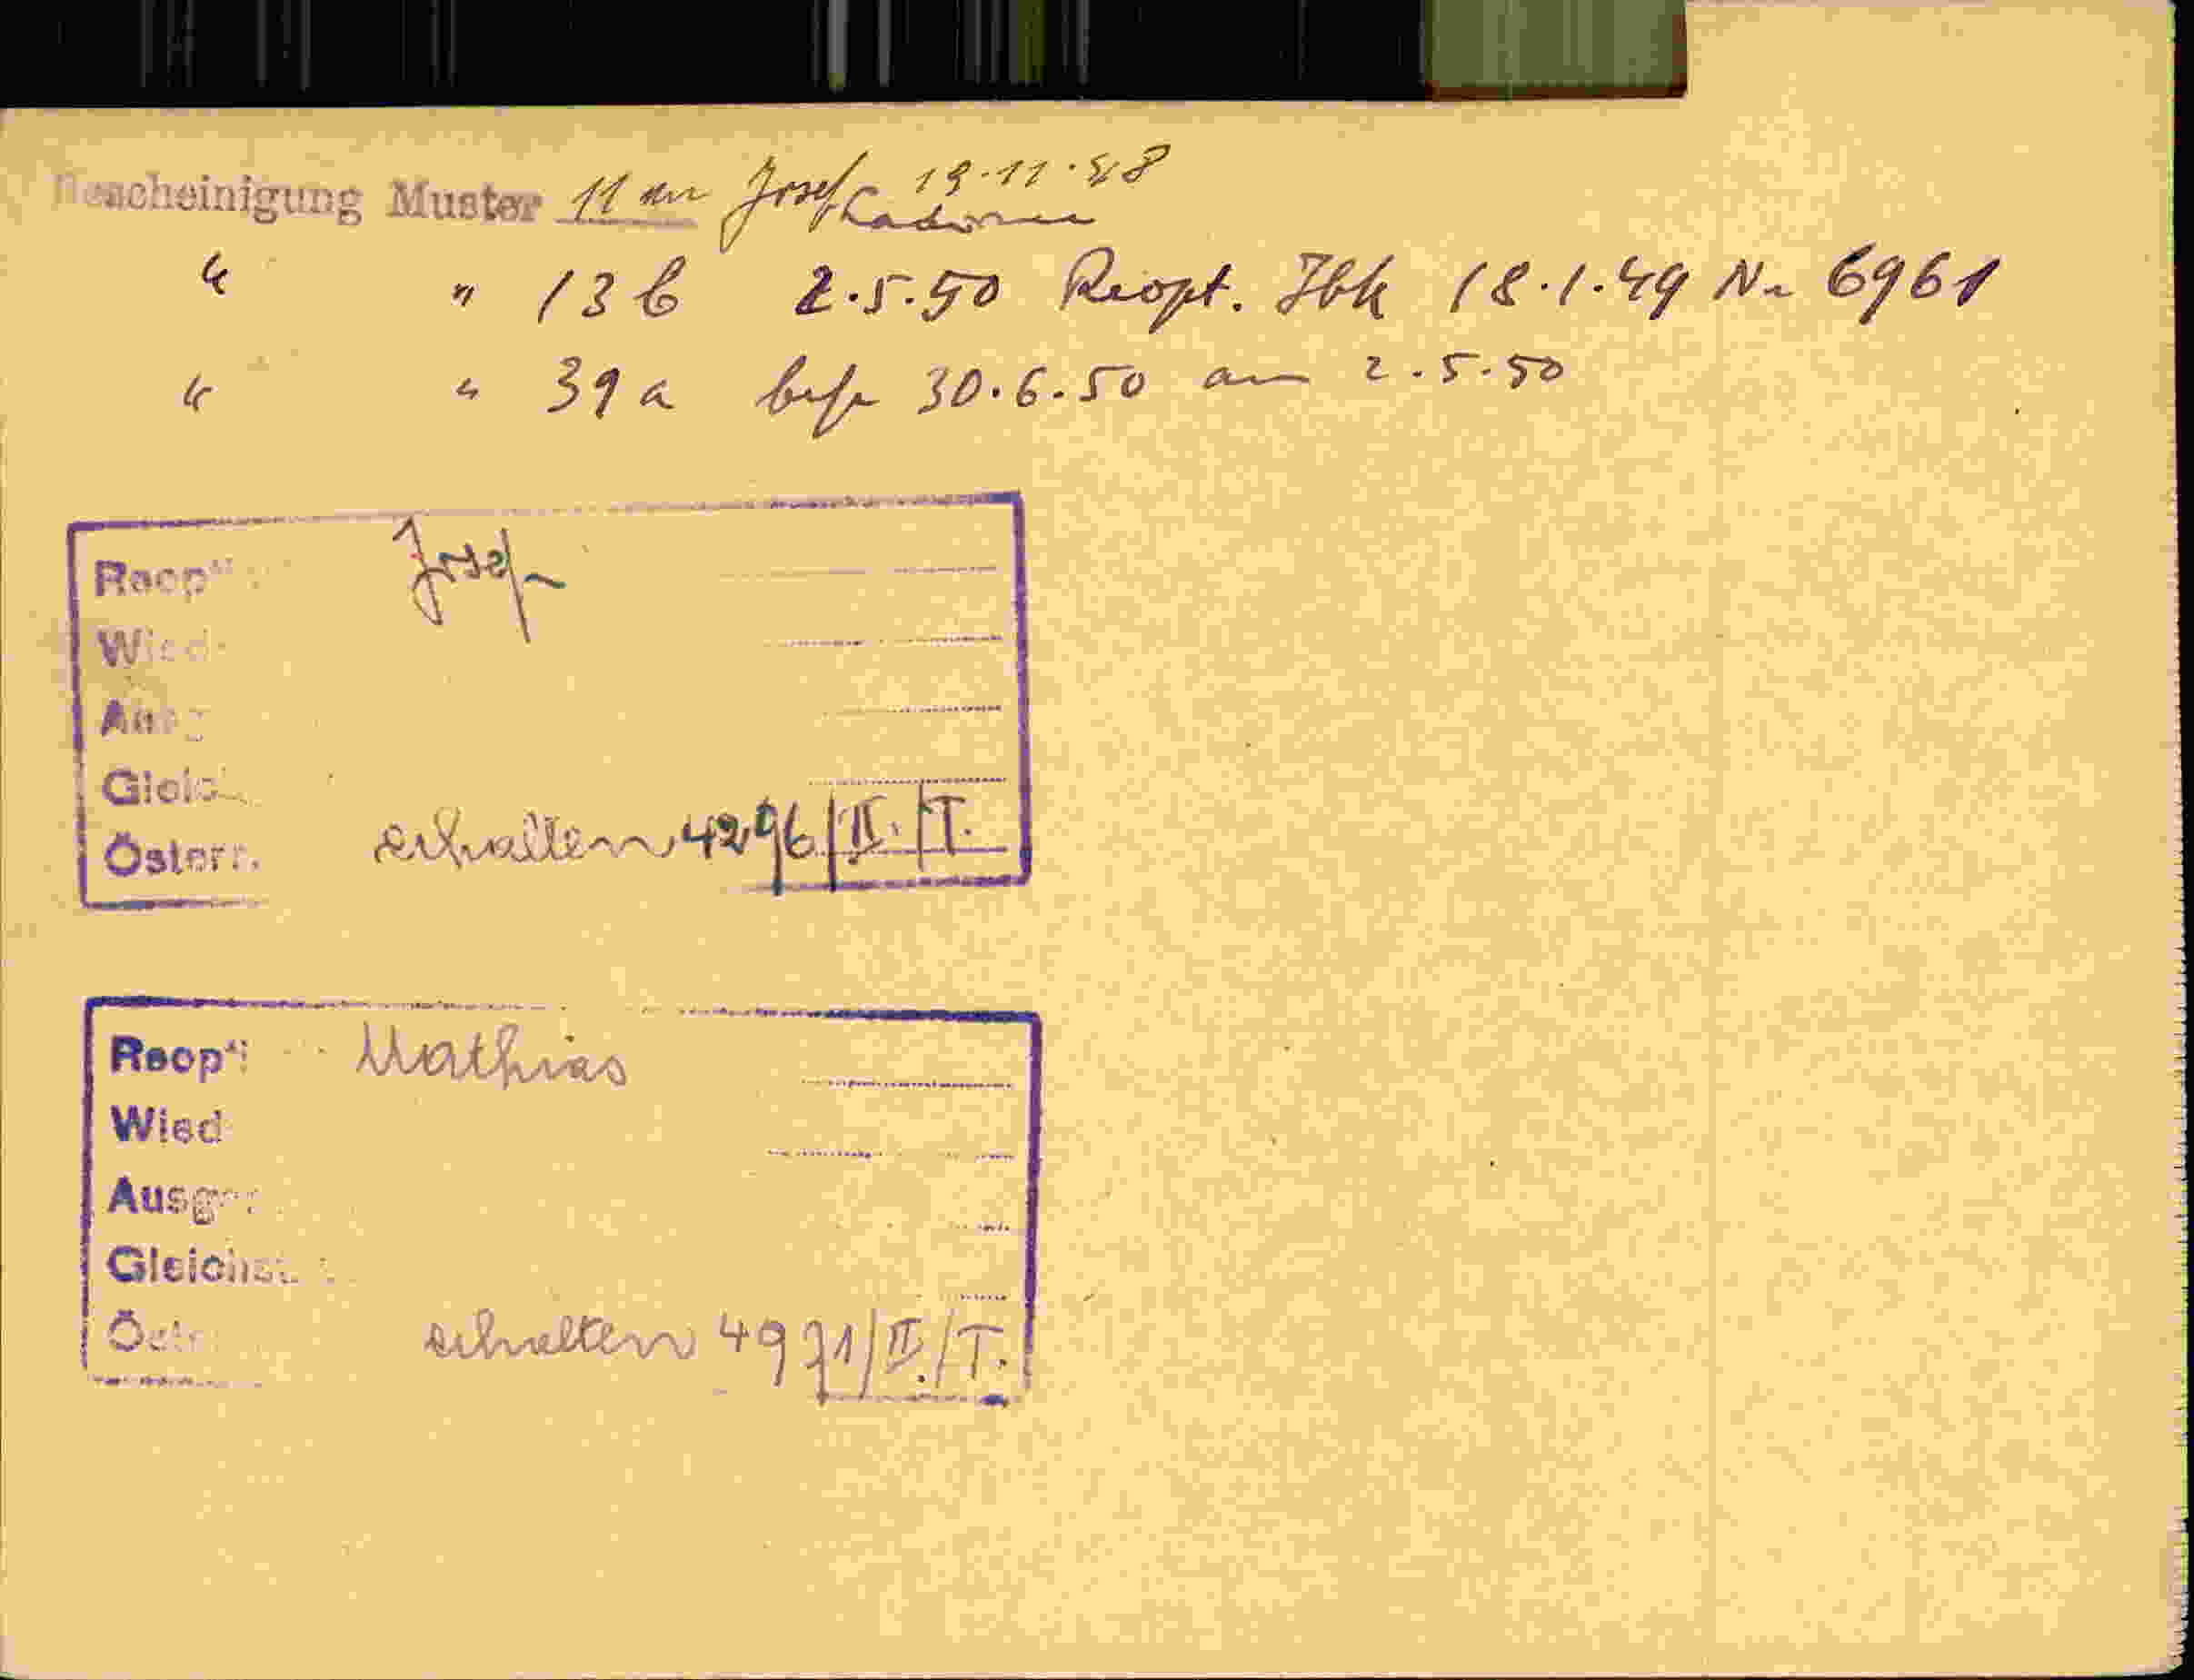 Bescheinigung Muster 11 an Josef 19.11.48
" " 13 b 2.5.50 Reopt. Ibk 18.1.49 Nr 6961
" " 39 a bef 30.6.50 am 2.5.50
Reopt Josef
Wied
Ausg
Gleich
Österr. erhalten 4296/II./T.
Reopt Mathias
Wied
Ausg
Gleichst.
Östr erhalten 4971/II./T.